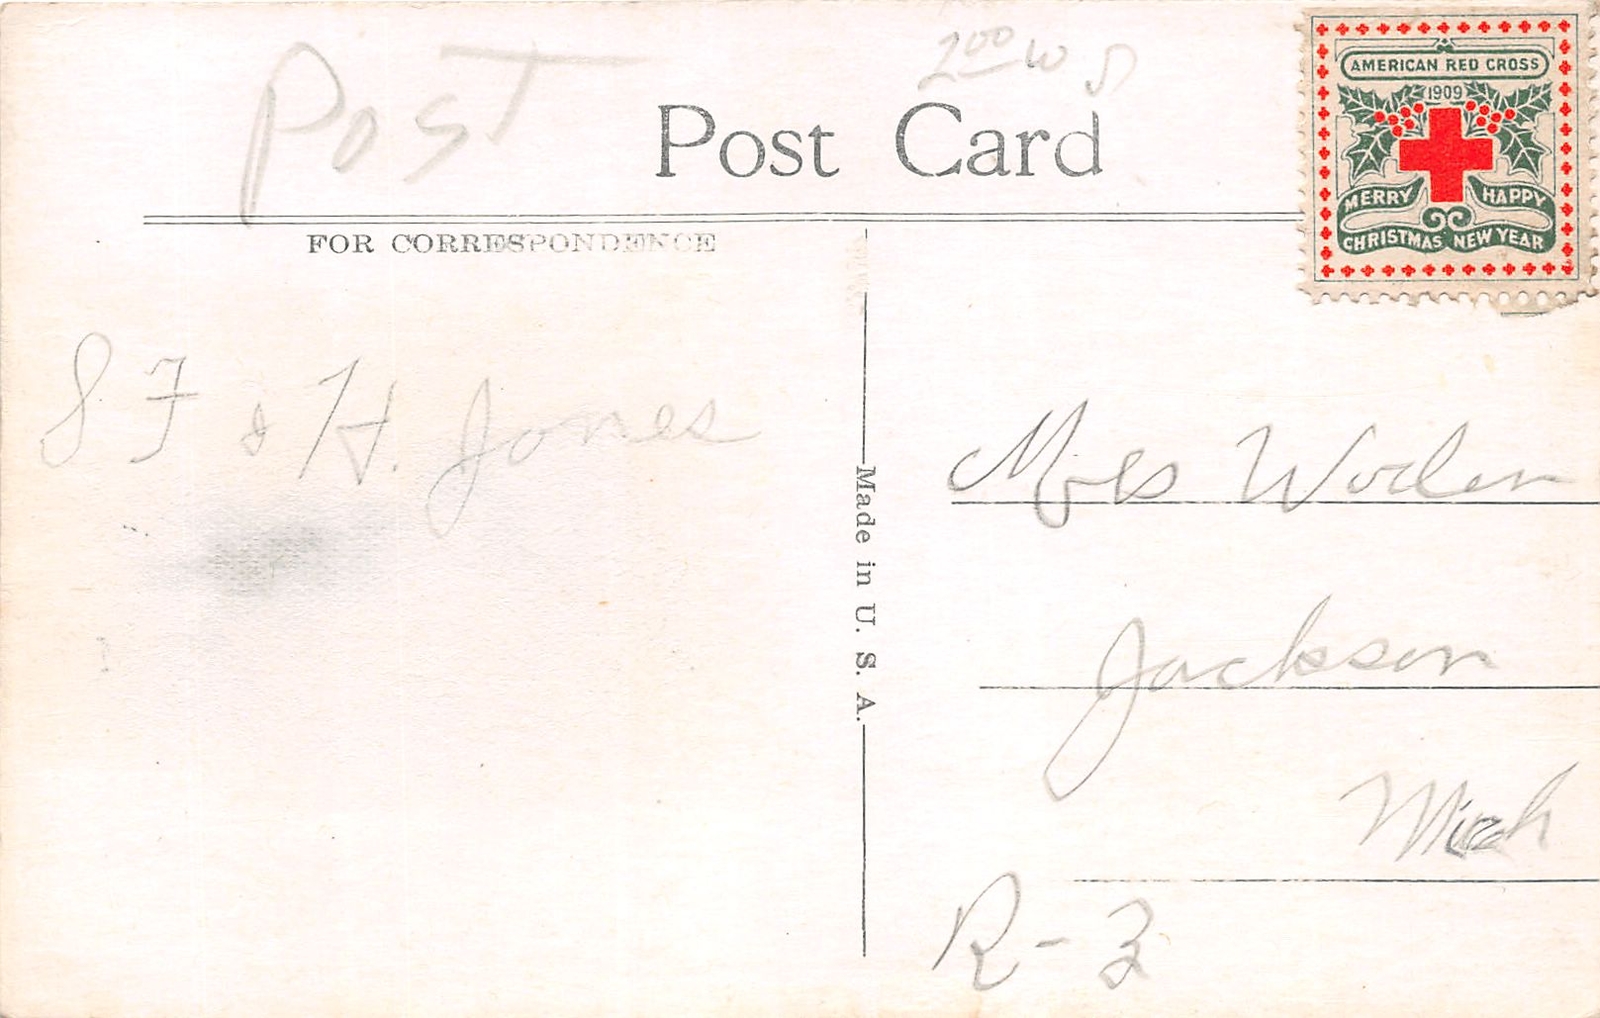 Post
2 00 W
Post Card
AMERICAN RED CROSS
1909
MERRY HAPPY
CHRISTMAS NEW YEAR
FOR CORRESPONDENCE
S F & H. Jones
Made in U. S. A.
Woden
Jackson
Mich
R-3